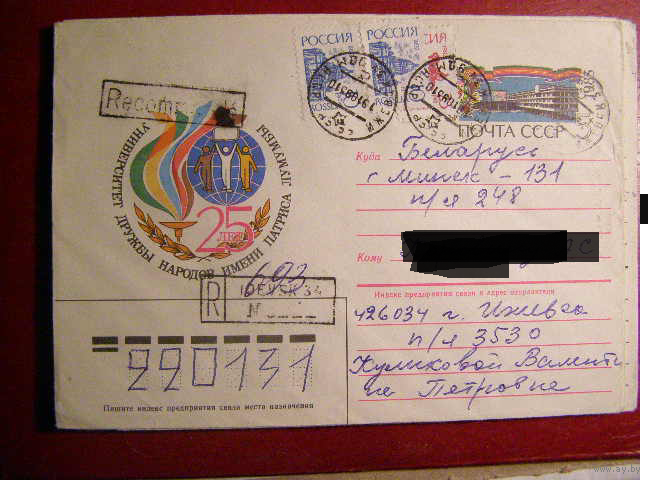 РОССИЯ
РОССИЯ
РОССИЯ
Recom
ПОЧТА СССР
УНИВЕРСИТЕТ ДРУЖБЫ НАРОДОВ ИМЕНИ ПАТРИСА ЛУМУМБЫ
25
ЛЕТ
Куда Беларусь
г Минск - 131
п/я 248
Кому
693
R IJEVSK 34
Индекс предприятия связи и адрес отправителя
426034 г. Ижевск
п/я 3530
Куликовой Валенти
не Петровне
220131
Пишите индекс предприятия связи места назначения
www.ay.by